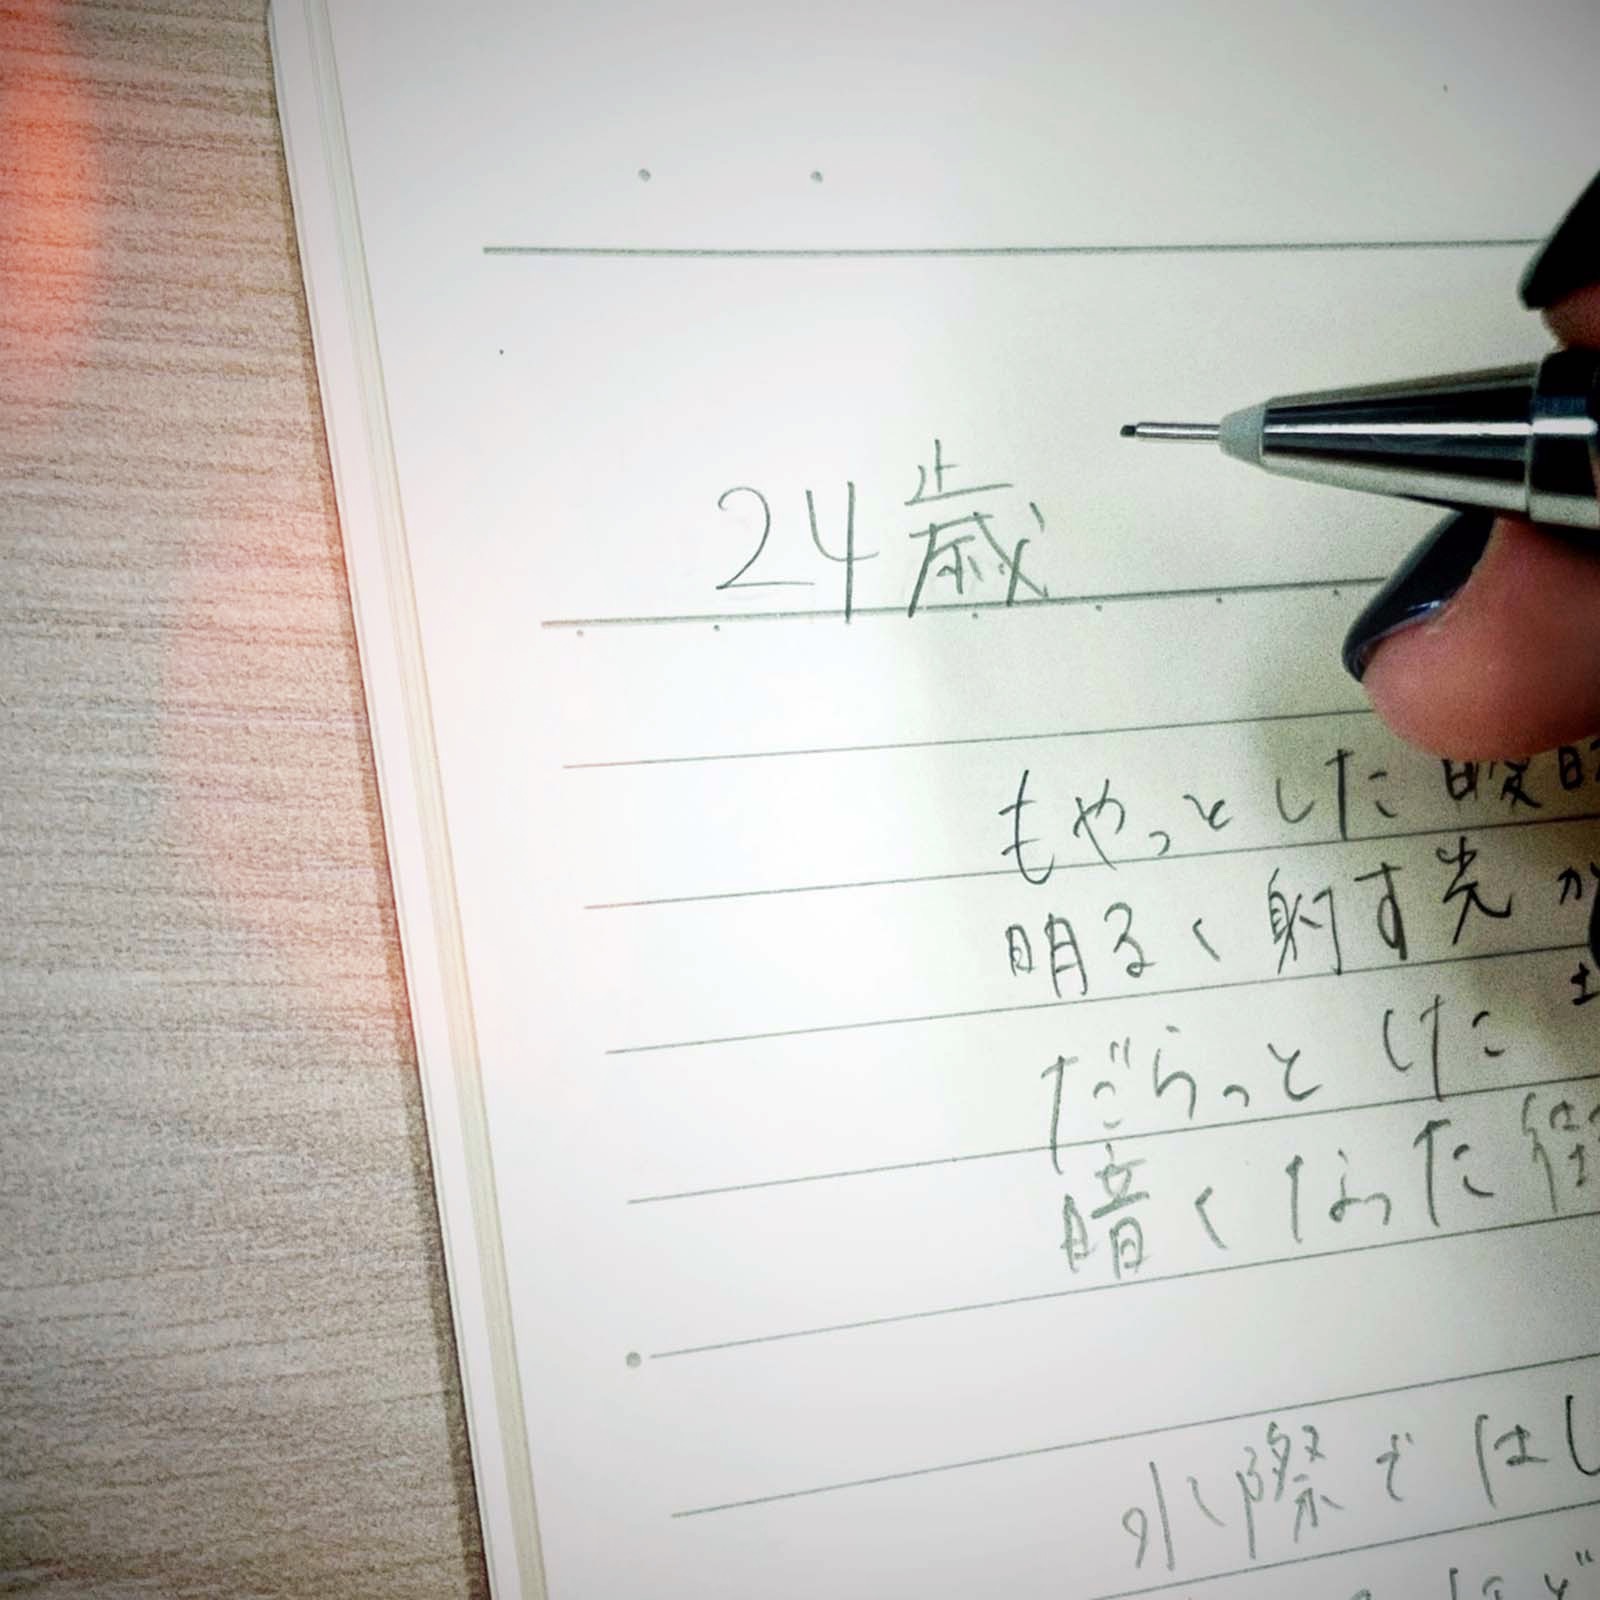 24歳
もやっとした
明るく射す光
だらっとした
暗くなった
水際では